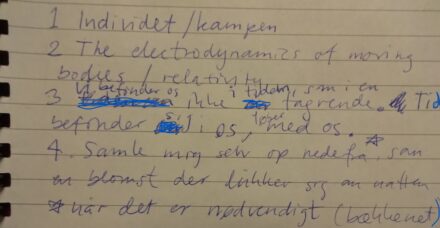 1 Individet/kampen
2 The electrodynamics of moving
bodies / relativity
Vi befinder os i tiden, som i en
3 ikke fagrende. Tid
sig løber
befinder i os, med os. *
4. Samle mig selv op nedefra, som
en blomst der lukker sig om natten
* når det er nødvendigt (bækkenet)